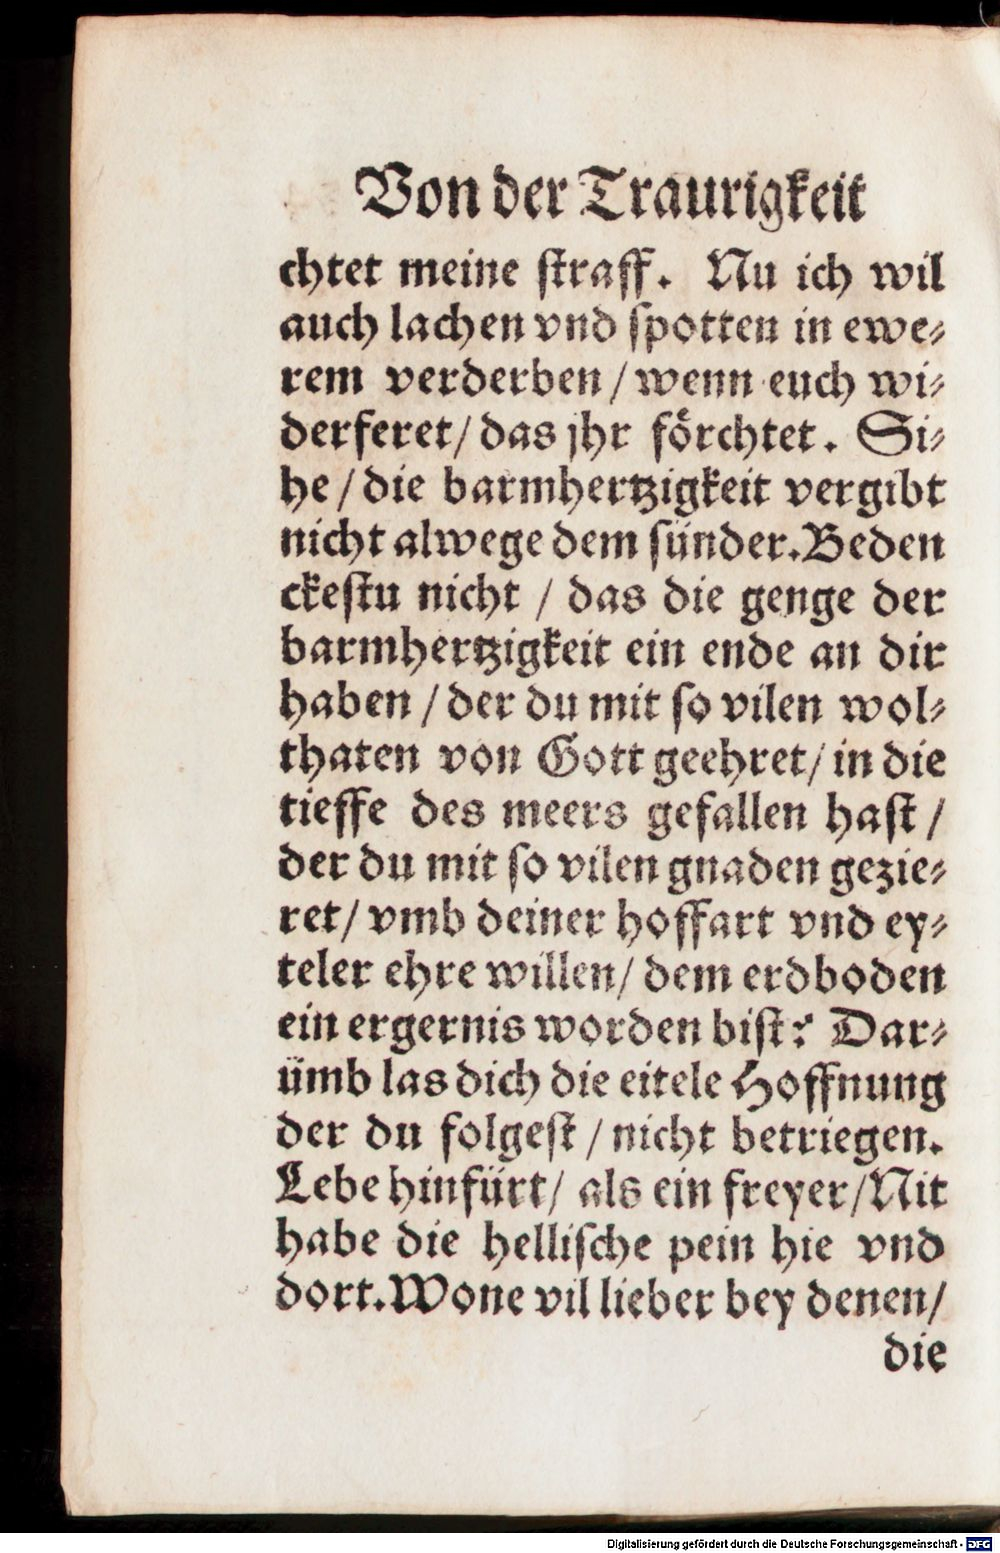 Von der Traurigkeit
chtet meine straff. Nu ich wil
auch lachen vnd spotten in ewe-
rem verderben / wenn euch wi-
derferet / das jhr förchtet. Si-
he / die barmhertzigkeit vergibt
nicht alwege dem sünder. Beden
ckestu nicht / das die genge der
barmhertzigkeit ein ende an dir
haben / der du mit so vilen wol-
thaten von Gott geehret / in die
tieffe des meers gefallen hast /
der du mit so vilen gnaden gezie-
ret / vmb deiner hoffart vnd ey-
teler ehre willen / dem erdboden
ein ergernis worden bist? Dar-
ümb las dich die eitele Hoffnung
der du folgest / nicht betriegen.
Lebe hinfürt / als ein freyer / Nit
habe die hellische pein hie vnd
dort. Wone vil lieber bey denen /
die
Digitalisierung gefördert durch die Deutsche Forschungsgemeinschaft - DFG